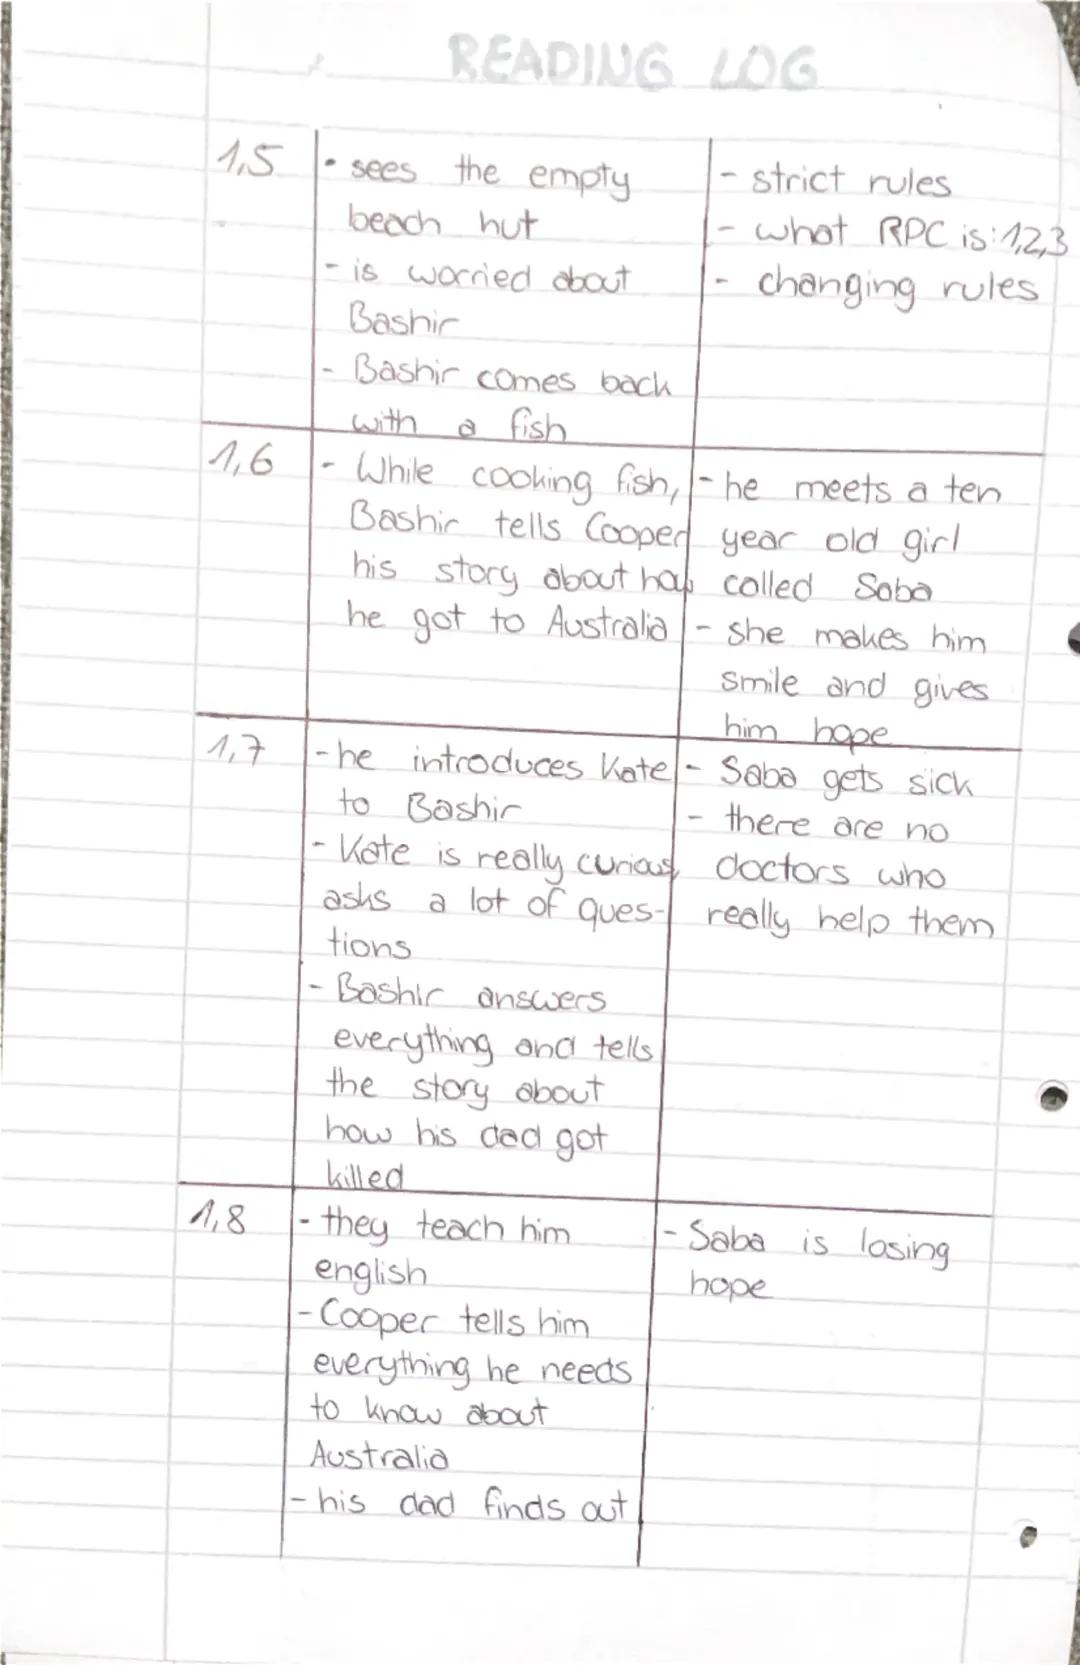 READING LOG
1,5
• sees the empty
beach hut
- is worried about
Bashir
- Bashir comes back
with a fish
- strict rules
- what RPC is: 1,2,3
- changing rules
1,6
- While cooking fish,
Bashir tells Cooper
his story about how
he got to Australia
- he meets a ten
year old girl
called Saba
- she makes him
smile and gives
him hope
1,7
- he introduces Kate
to Bashir
- Kate is really curious,
asks a lot of ques-
tions
- Bashir answers
everything and tells
the story about
how his dad got
killed
- Saba gets sick
- there are no
doctors who
really help them
1,8
- they teach him
english
- Cooper tells him
everything he needs
to know about
Australia
- his dad finds out
- Saba is losing
hope